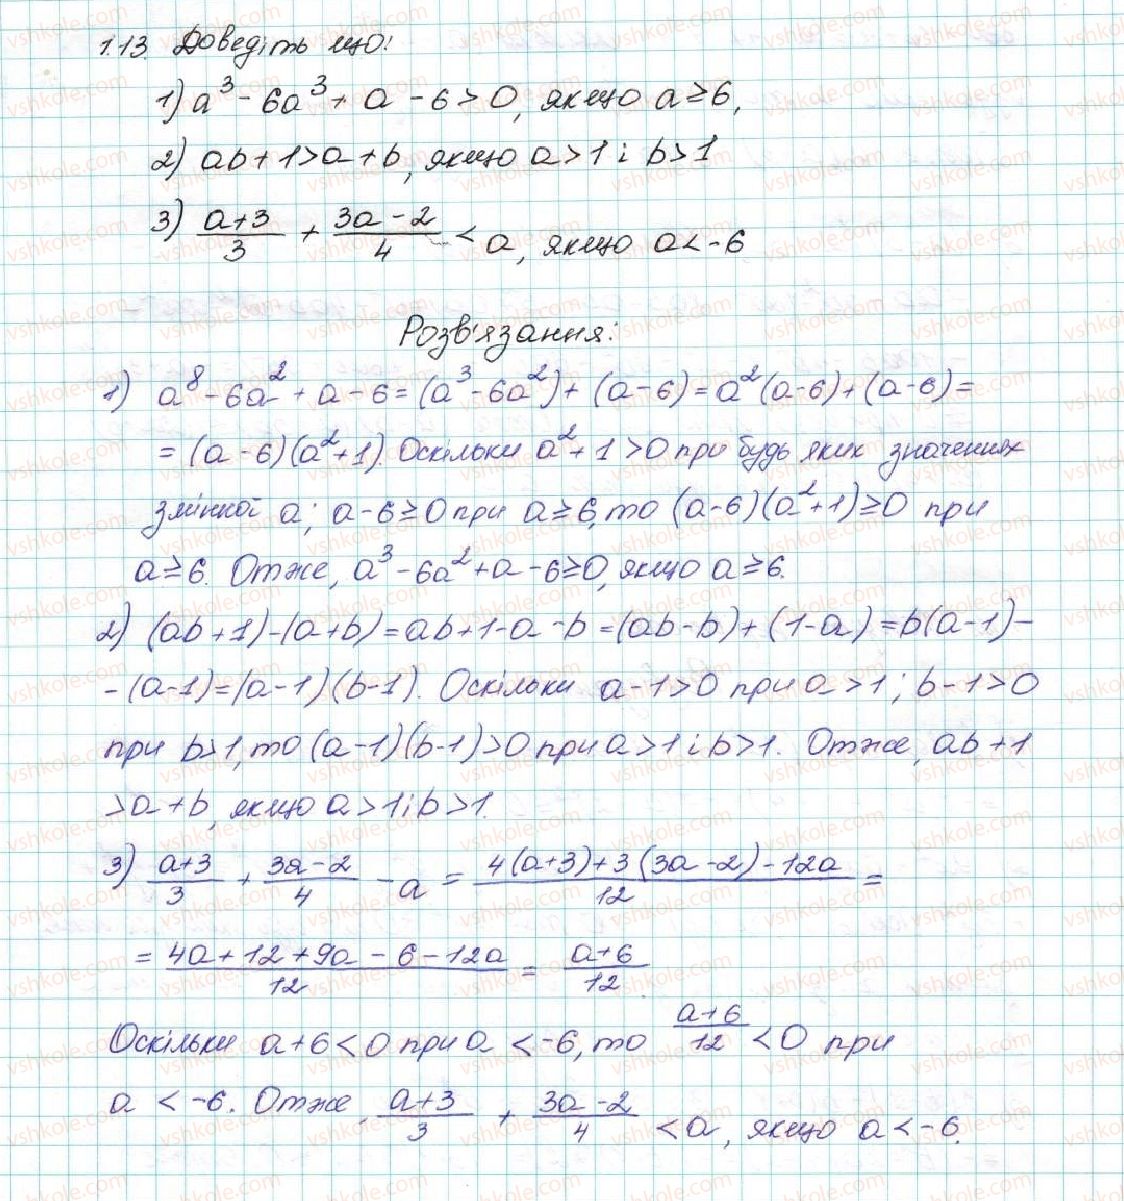 1.13. Доведіть що:
1) a³ - 6a³ + a - 6 > 0, якщо a ≥ 6,
2) ab + 1 > a + b, якщо a > 1 і b > 1
3) (a+3)/3 + (3a-2)/4 < a, якщо a < -6
Розв'язання:
1) a⁸ - 6a² + a - 6 = (a³ - 6a²) + (a - 6) = a²(a - 6) + (a - 6) =
= (a - 6)(a² + 1). Оскільки a² + 1 > 0 при будь яких значеннях
змінної a; a - 6 ≥ 0 при a ≥ 6, то (a - 6)(a² + 1) ≥ 0 при
a ≥ 6. Отже, a³ - 6a² + a - 6 ≥ 0, якщо a ≥ 6.
2) (ab + 1) - (a + b) = ab + 1 - a - b = (ab - b) + (1 - a) = b(a - 1) -
- (a - 1) = (a - 1)(b - 1). Оскільки a - 1 > 0 при a > 1; b - 1 > 0
при b > 1, то (a - 1)(b - 1) > 0 при a > 1 і b > 1. Отже, ab + 1
> a + b, якщо a > 1 і b > 1.
3) (a+3)/3 + (3a-2)/4 - a = (4(a+3)+3(3a-2)-12a)/12 =
= (4a+12+9a-6-12a)/12 = (a+6)/12
Оскільки a + 6 < 0 при a < -6, то (a+6)/12 < 0 при
a < -6. Отже, (a+3)/3 + (3a-2)/4 < a, якщо a < -6.